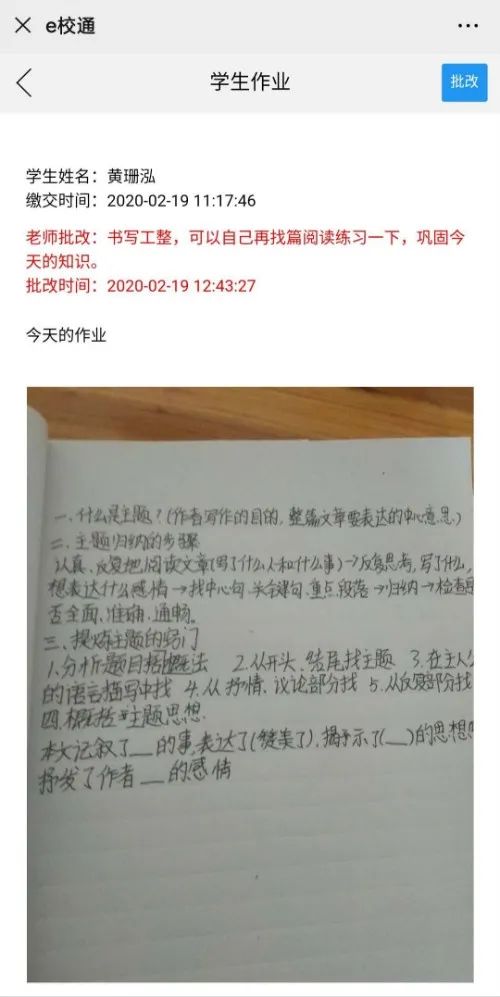 e校通
学生作业
批改
学生姓名：黄珊泓
缴交时间：2020-02-19 11:17:46
老师批改：书写工整，可以自己再找篇阅读练习一下，巩固今
天的知识。
批改时间：2020-02-19 12:43:27
今天的作业
一、什么是主题？(作者写作的目的，整篇文章要表达的中心意思)
二、主题归纳的步骤
认真、反复地阅读文章(写了什么人和什么事)→反复思考，写了什么，
想表达什么感情→找中心句、关键句、重点段落→归纳→检查是
否全面、准确、通畅。
三、提炼主题的窍门
1.分析题目概括法 2.从开头、结尾找主题 3.在主人公
的语言描写中找 4.从抒情、议论部分找 5.从反复部分找
四、概括主题思想.
本文记叙了__的事,表达了(赞美了),揭示了(__)的思想
抒发了作者__的感情